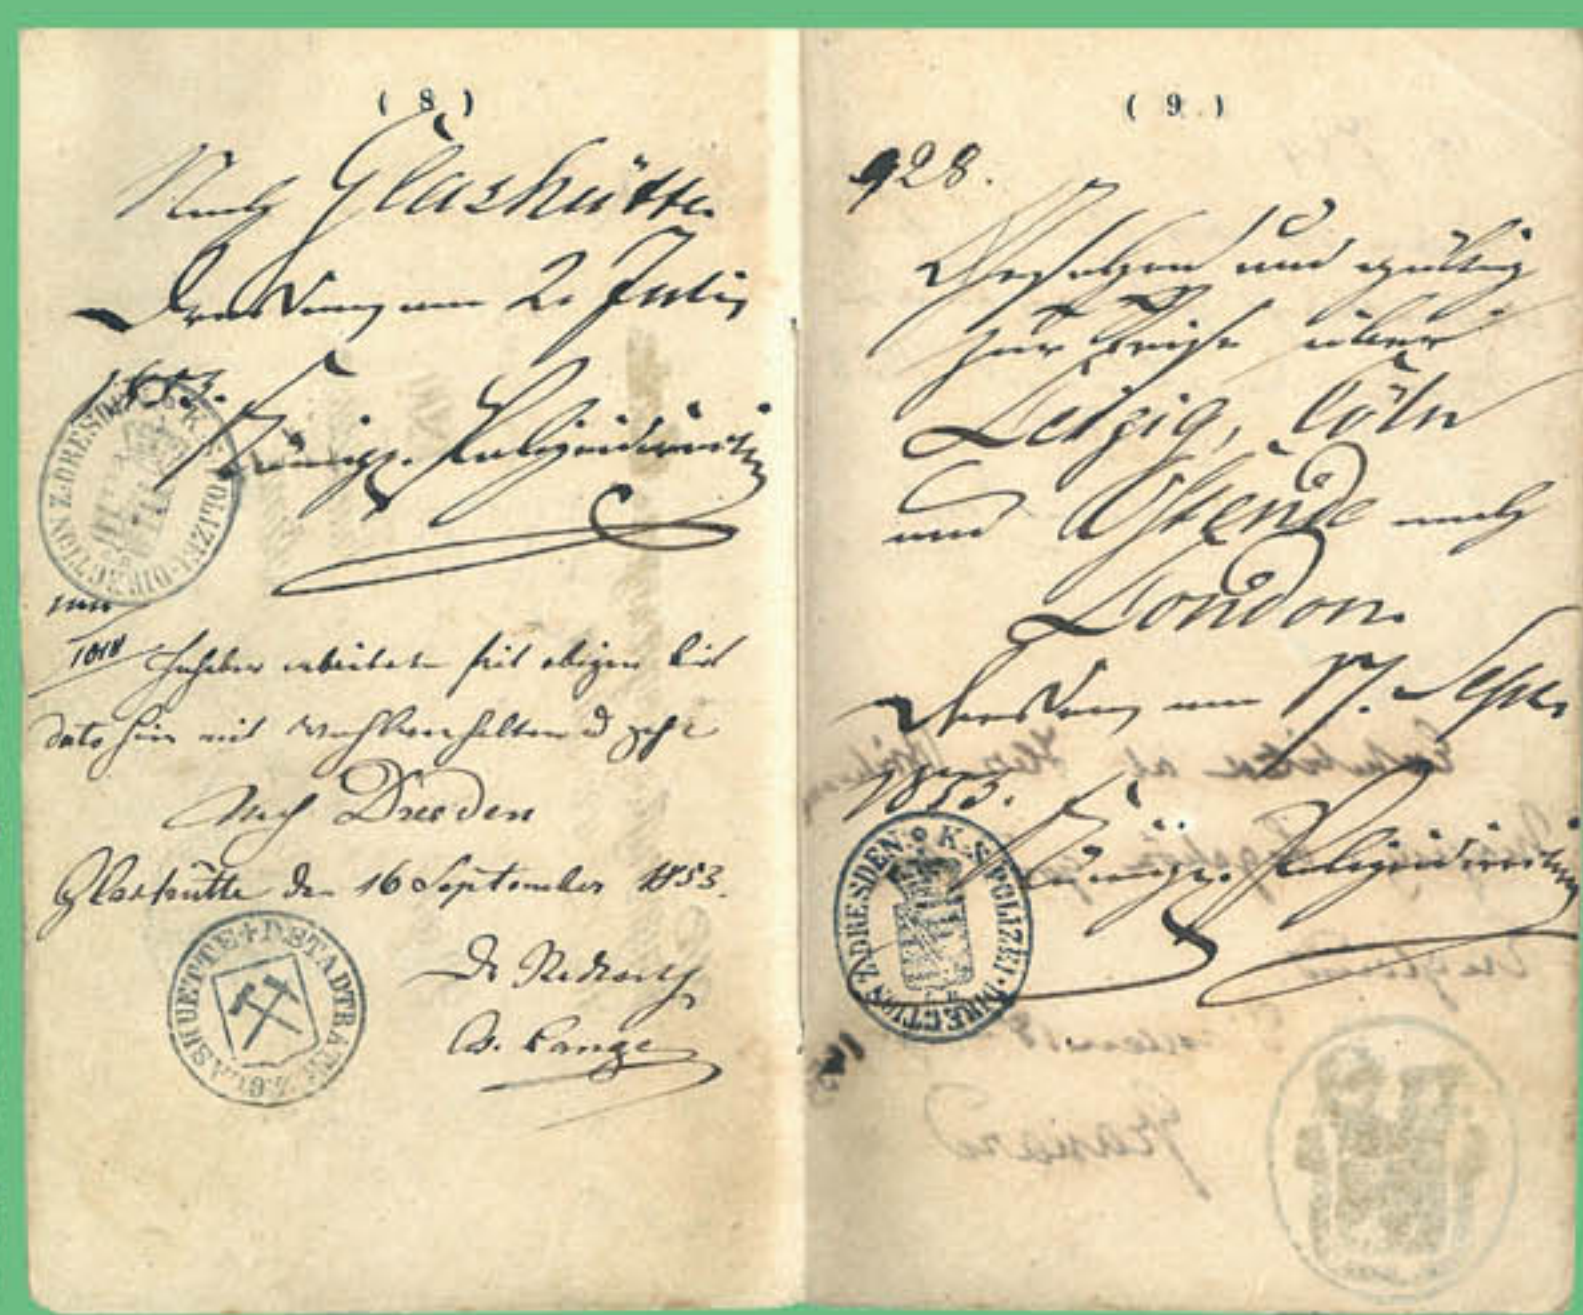 ( 8 )
Nach Glashütte
Dresden, am 2. July
1853.
Königl. Polizeidirection
K. S. POLIZEI-DIRECTION Z. DRESDEN
1018 Inhaber arbeitete seit obigen bis
dato hier mit Wohlverhalten u geht
Nach Dresden
Glashütte den 16 September 1853.
D. STADTRATH Z. GLASHUETTE
Der Stadtrath
A. Lange
( 9. )
928.
Gesehen und gültig
zur Reise über
Leipzig, Cöln
und Ostende nach
London.
Dresden, am 17. Sept.
1853.
Königl. Polizeidirection
K. S. POLIZEI-DIRECTION Z. DRESDEN